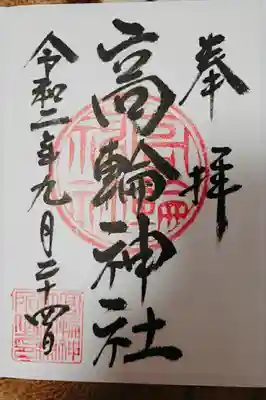 奉拝
高輪神社
令和二年九月二十四日